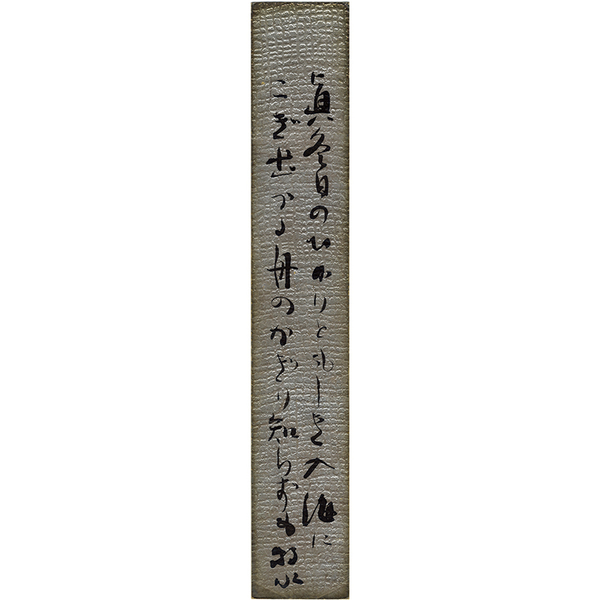 眞冬日のひかりともしき入海に
こぎ出つる舟のかぎり知らずも